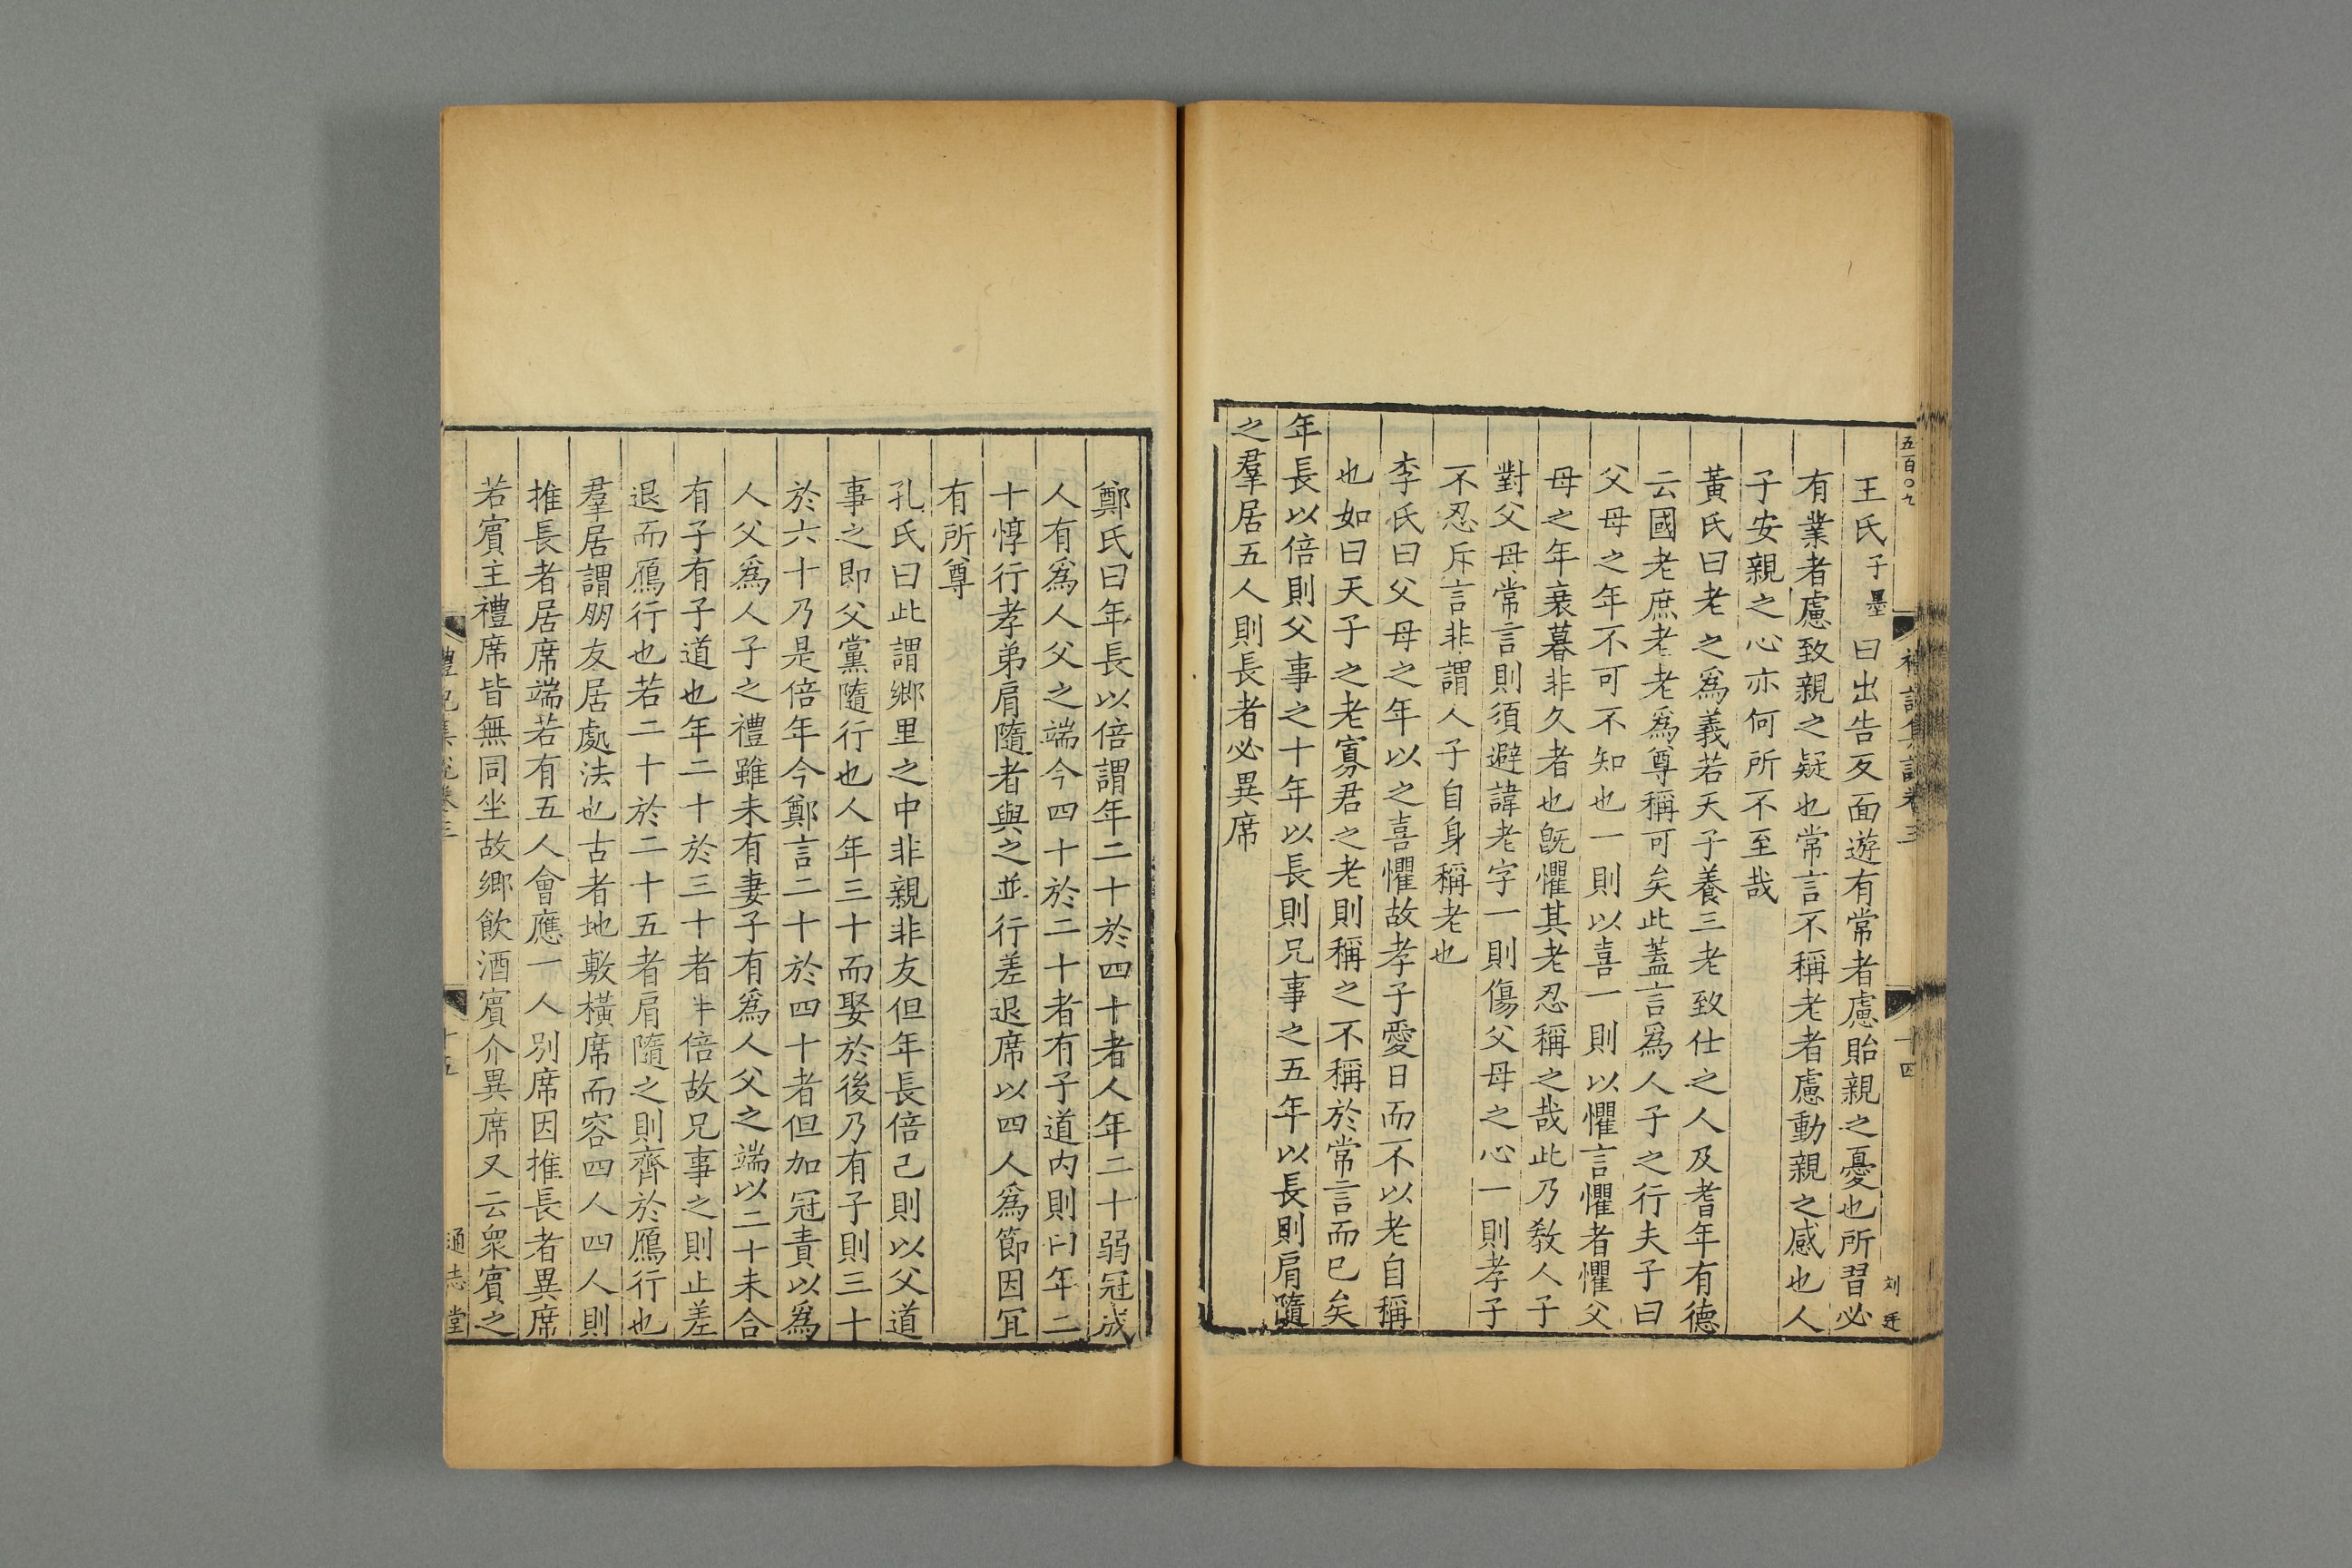 五百〇九
禮記集說卷三
十四
刘廷
王氏子墨曰出告反面遊有常者慮貽親之憂也所習必
有業者慮致親之疑也常言不稱老者慮動親之感也人
子安親之心亦何所不至哉
黃氏曰老之爲義若天子養三老致仕之人及耆年有德
云國老庶老老爲尊稱可矣此蓋言爲人子之行夫子曰
父母之年不可不知也一則以喜一則以懼言懼者懼父
母之年衰暮非久者也旣懼其老忍稱之哉此乃敎人子
對父母常言則須避諱老字一則傷父母之心一則孝子
不忍斥言非謂人子自身稱老也
李氏曰父母之年以之喜懼故孝子愛日而不以老自稱
也如曰天子之老寡君之老則稱之不稱於常言而已矣
年長以倍則父事之十年以長則兄事之五年以長則肩隨
之羣居五人則長者必異席
鄭氏曰年長以倍謂年二十於四十者人年二十弱冠成
人有爲人父之端今四十於二十者有子道内則曰年二
十惇行孝弟肩隨者與之並行差退席以四人爲節因冝
有所尊
孔氏曰此謂鄉里之中非親非友但年長倍己則以父道
事之即父黨隨行也人年三十而娶於後乃有子則三十
於六十乃是倍年今鄭言二十於四十者但加冠責以爲
人父爲人子之禮雖未有妻子有爲人父之端以二十未合
有子有子道也年二十於三十者半倍故兄事之則止差
退而鴈行也若二十於二十五者肩隨之則齊於鴈行也
羣居謂朋友居處法也古者地敷橫席而容四人四人則
推長者居席端若有五人會應一人別席因推長者異席
若賓主禮席皆無同坐故鄉飲酒賓介異席又云衆賓之
禮記集說卷三
十五
通志堂